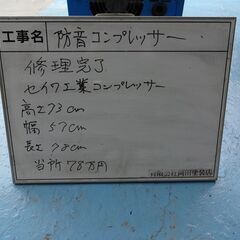 工事名 防音コンプレッサー
修理完了
セイワ工業コンプレッサー
高さ73cm
幅57cm
長さ98cm
当所78万円
有限会社岡田塗装店